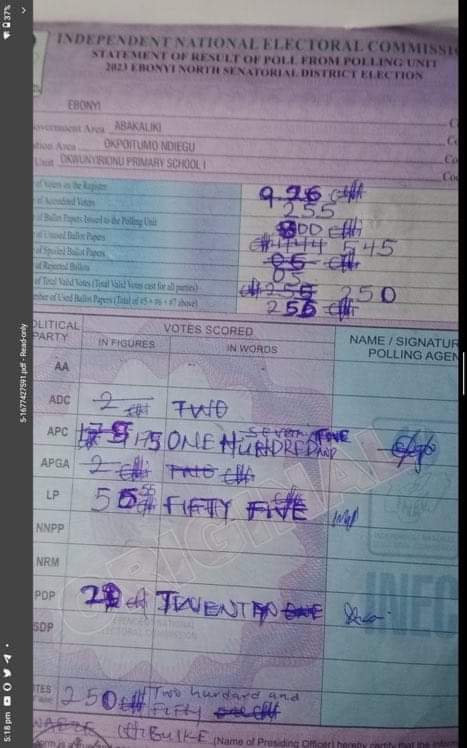 INDEPENDENT NATIONAL ELECTORAL COMMISSI
STATEMENT OF RESULT OF POLL FROM POLLING UNIT
2023 EBONYI NORTH SENATORIAL DISTRICT ELECTION
EBONYI
overnment Area ABAKALIKI
tion Area OKPOITUMO NDIEGU
Unit OKWUNYIRIONU PRIMARY SCHOOL I
of Voters on the Register 926
of Accredited Voters 255
of Ballot Papers Issued to the Polling Unit 800
of Unused Ballot Papers 545
of Spoiled Ballot Papers
of Rejected Ballots 05
of Total Valid Votes (Total Valid Votes cast for all parties) 250
mber of Used Ballot Papers (Total of #5 + #6 + #7 above) 255
POLITICAL PARTY VOTES SCORED NAME / SIGNATUR
IN FIGURES IN WORDS POLLING AGEN
AA
ADC 2 TWO
APC 175 ONE HUNDRED AND SEVENTY FIVE
APGA 2 TWO
LP 50 FIFTY FIVE
NNPP
NRM
PDP TWENTY ONE
SDP
250 Two hundard and
FIFTY
(Name of Presiding Officer) hereby certify that the
ORIGINAL
INEC
5-1677427591.pdf - Read-only
5:18 pm
37%